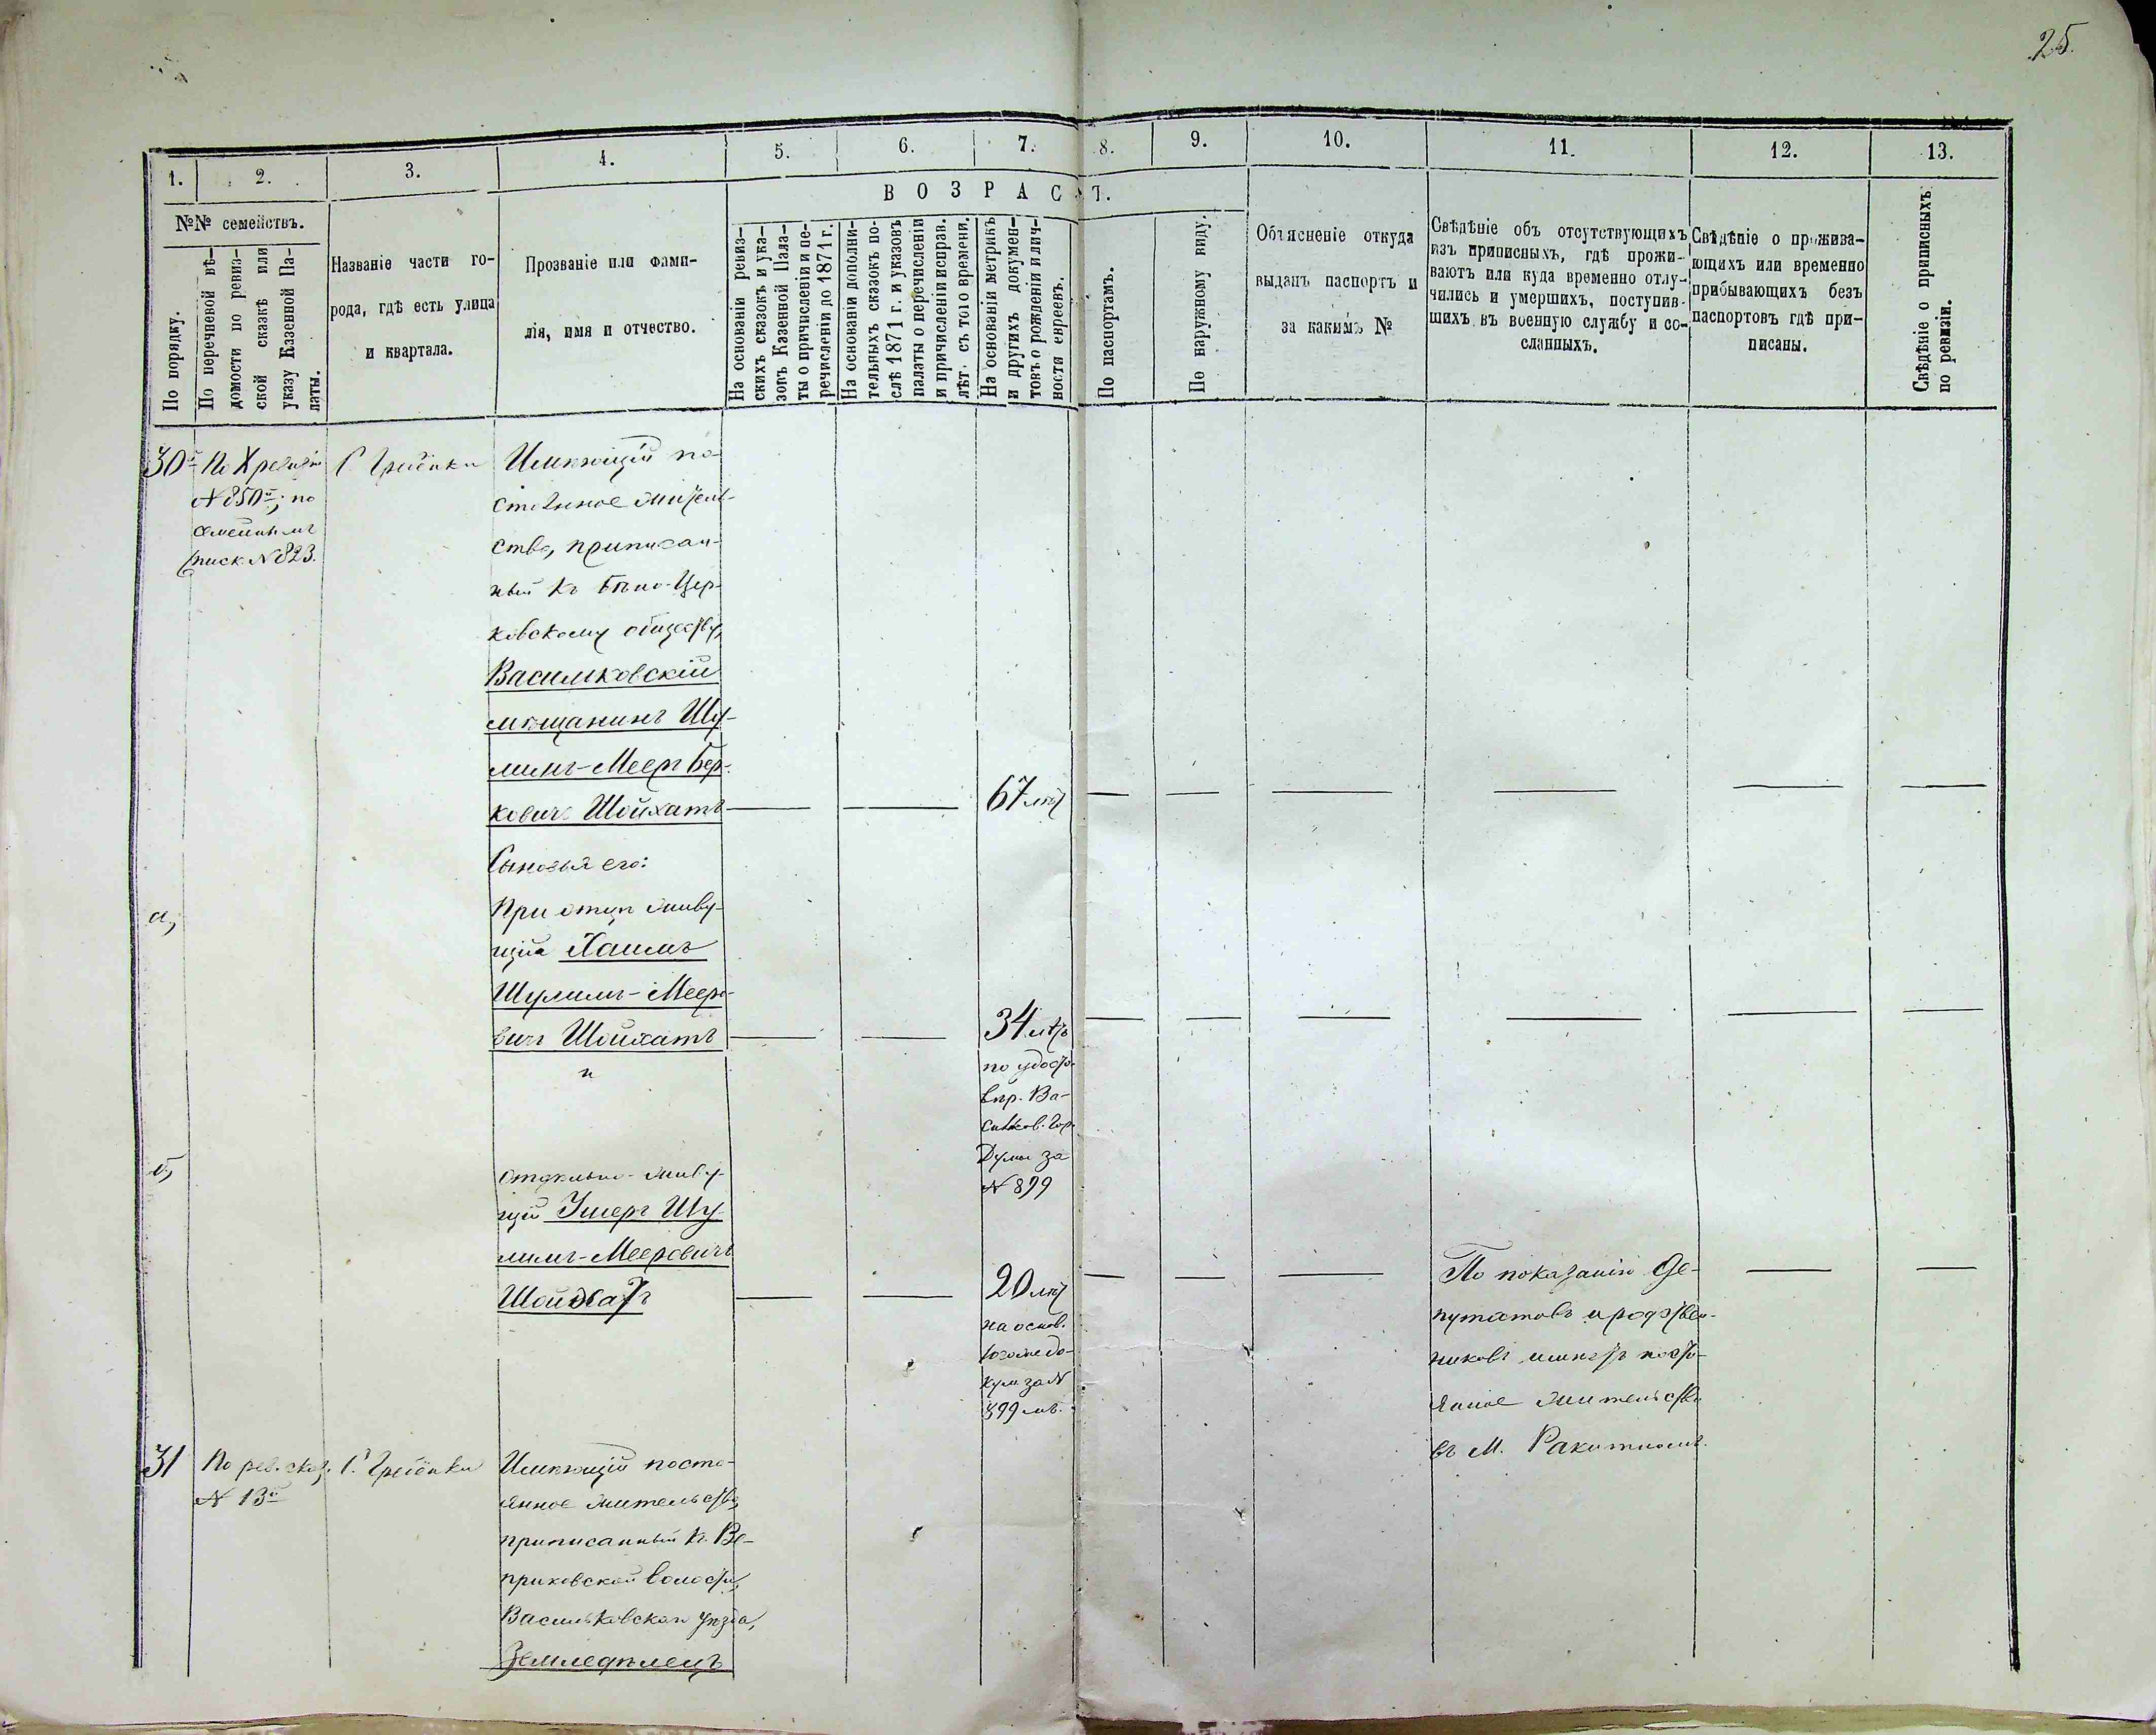 25.
1.
2.
3.
4.
5.
6.
7.
8.
9.
10.
11.
12.
13.
№№ семействъ.
По порядку.
По перечневой вѣ-
домости по ревиз-
ской сказкѣ или
указу Казенной Па-
латы.
Названіе части го-
рода, гдѣ есть улица
и квартала.
Прозваніе или фами-
лія, имя и отчество.
ВОЗРАСТ.
На основаніи ревиз-
скихъ сказокъ и ука-
зовъ Казенной Пала-
ты о причисленіи и пе-
речисленіи до 1871 г.
На основаніи дополни-
тельныхъ сказокъ по-
слѣ 1871 г. и указовъ
палаты о перечисленіи
и причисленіи исправ.
лѣт. съ того времени.
На основаніи метрикъ
и другихъ докумен-
товъ о рожденіи и лич-
ности евреевъ.
По паспортамъ.
По наружному виду.
Объясненіе откуда
выданъ паспортъ и
за какимъ №
Свѣдѣніе объ отсутствующихъ
изъ приписныхъ, гдѣ прожи-
ваютъ или куда временно отлу-
чились и умершихъ, поступив-
шихъ въ военную службу и со-
сланныхъ.
Свѣдѣніе о прожива-
ющихъ или временно
прибывающихъ безъ
паспортовъ гдѣ при-
писаны.
Свѣдѣніе о приписныхъ
по ревизіи.
30й
По X ревизіи
№ 850й; по
семейнымъ
списк. № 823.
С. Гребёнки
Имѣющій по-
стоянное житель-
ство, приписан-
ный къ Бѣло-Цер-
ковскому обществу,
Васильковскій
мѣщанинъ Шу-
лимъ-Мееръ Бер-
ковичъ Шойхатъ
67 лѣтъ
Сыновья его:
а,
При отцѣ живу-
щій Хаимъ
Шулимъ-Мееро-
вичъ Шойхатъ
и
34 лѣтъ
по удосто-
вѣр. Ва-
сильков. Гор.
Думы за
№ 899
б,
Отдѣльно-живу-
щій Ушеръ Шу-
лимъ-Мееровичъ
Шойхатъ
20 лѣтъ
на основ.
того же до-
кум. за №
899 мъ.
По показанію де-
путатовъ и родствен-
никовъ имѣетъ посто-
янное жительство
въ М. Ракитномъ.
31
По рев. сказ.
№ 13й
С. Гребёнки
Имѣющій посто-
янное жительство,
приписанный къ Ве-
приковской волости,
Васильковскаго уѣзда,
Земледѣлецъ